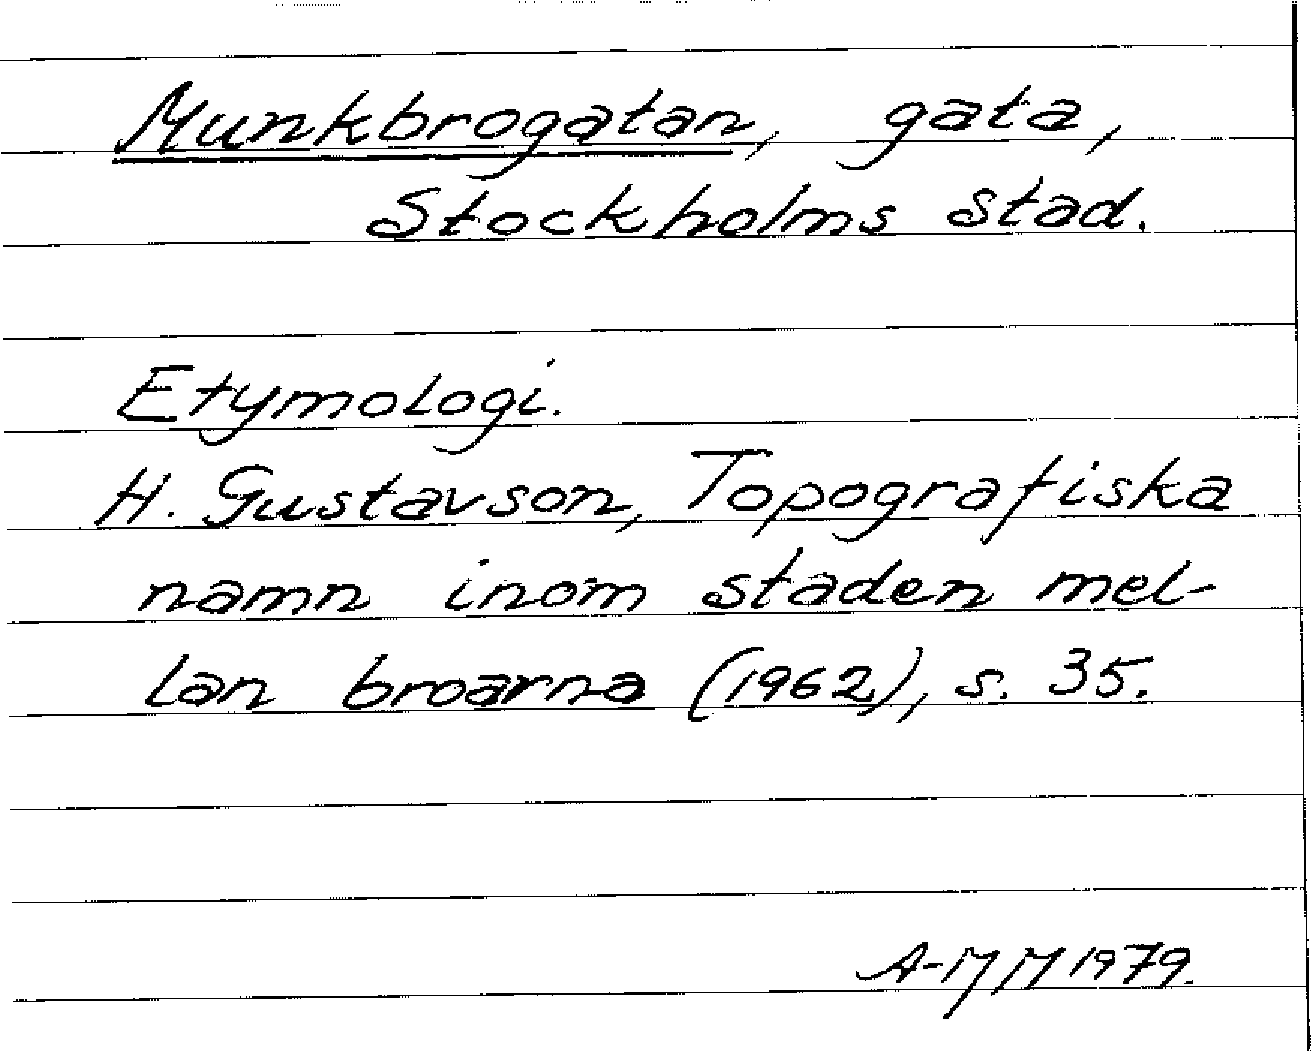 Munkbrogatan, gata,
Stockholms stad.
Etymologi.
H. Gustavson, Topografiska
namn inom staden mel-
lan broarna (1962), s. 35.
A-MM 1979.